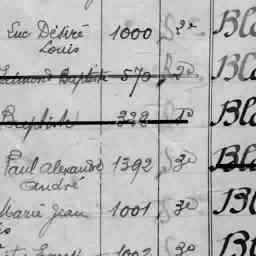 Luc Désiré 1000 S 2e Bl
Louis
Baptiste 570 S 2e Bl
Baptiste 328 1e Bl
Paul Alexandre 1392 S 3e Bl
André
Marie Jean 1001 S 3e Bl
1002 S 3e Bl